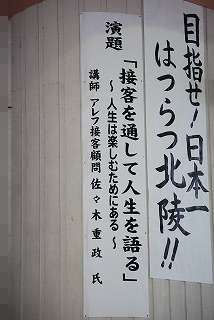 目指せ!日本一
はつらつ北陵!!
演題
「接客を通して人生を語る」
~人生は楽しむためにある~
講師 アレフ接客顧問 佐々木重政氏